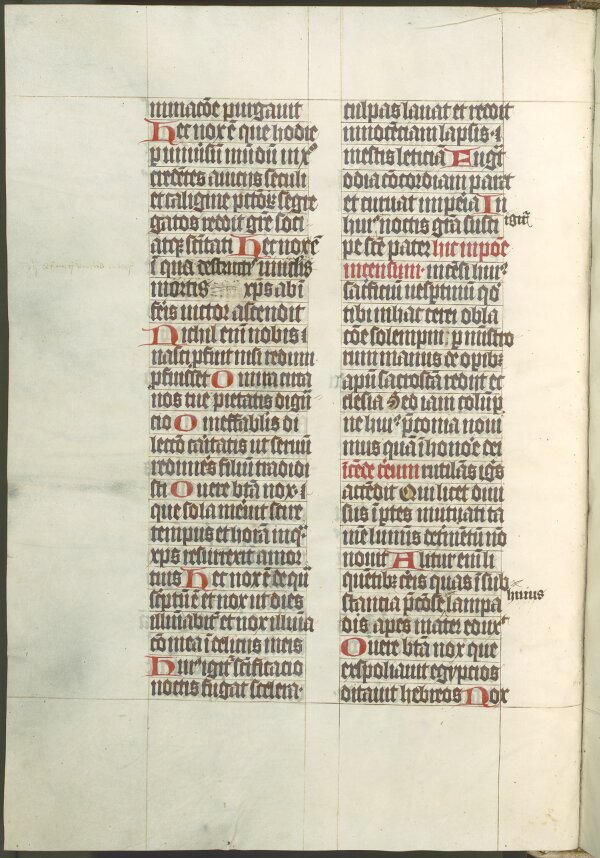 minacōe purgauit
Hec nox ē que hodie
p uniuersū mūdū in xp̄o
credētes a uiciis seculi
et caligine pctōꝝ segre
gatos reddit grē soci
atqꝫ scītati Hec nox ē
ī qua destructꝭ uinclis
mortis xp̄s ab ī
feris uictor ascendit
Nichil eni nobis
nasci pfuit nisi redimi
pfuisset O mira circa
nos tue pietatis digna
cio O ineffabilis di
lectō caritatis ut seruū
redimeēs filiū tradidi
sti O uere btā nox
que sola meruit scire
tempus et horā in qͣ
xp̄s resurrexit a mor
tuis Hec nox ē de qua
scriptū ē et nox ut dies
illuminabit͛ et nox illumina
cō mea ī deliciis meis
Huiꝰ igit͛ scīficatio
noctis fugat scelera
culpas lauat et reddit
innocētiam lapsis
mestis leticiā Fugat
odia cōcordiam parat
et curuat imperia In
huiꝰ noctis grā susci
igit͛
pe scē pater hic inpōe
incensum incēsi huiꝰ
sacficiū uesptinū qd
tibi in hac cerei obla
cōe solempni p ministro
rum manus de opibꝫ
apum sacroscā reddit ec
clesia Sed iam colump
ne huiꝰ pconia noui
mus quā ī honore dei
īcēde cereum rutilās igīs
accēdit Qui licet diui
sus ī ptes mutuati ta
me luminis detrimētū nō
nouit Alitur eni li
quētibꝫ ceris quas ī sub
stancia pciose lampa
huius
dis apes mater eduxͭ
O uere btā nox que
expoliauit egyptios
ditauit hebreos Nox